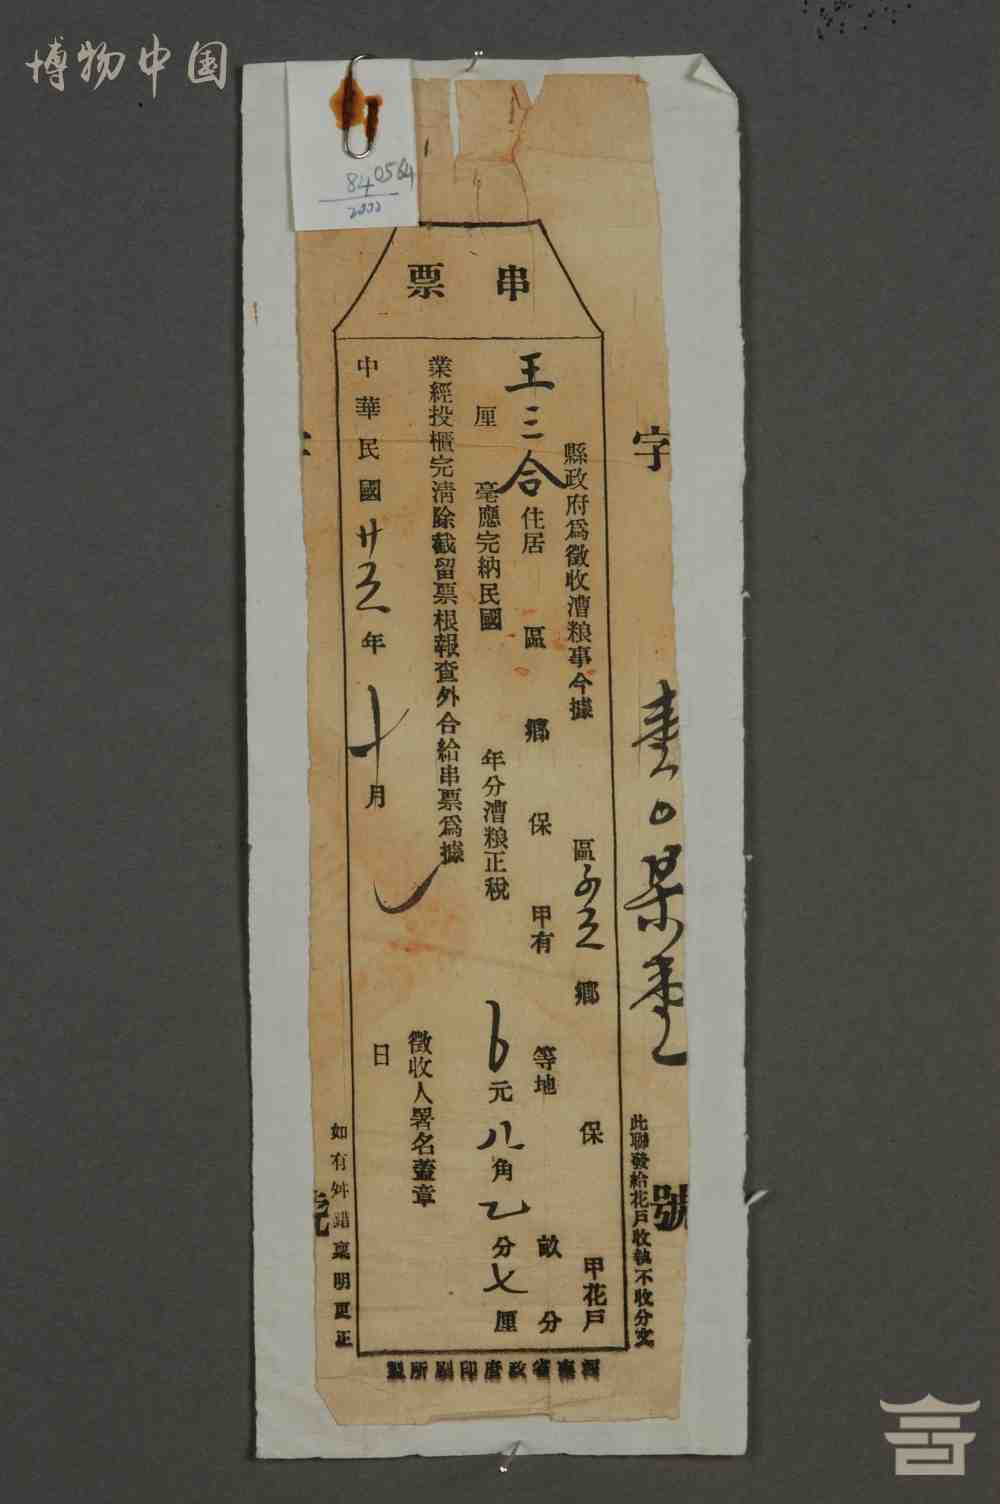 博物中国
840564
2000
串票
字
號
此聯發給花戶收執不收分文
縣政府爲徵收漕粮事今據
區
鄉
保
甲花戶
王三合住居
區
鄉
保
甲有
等地
畝
分
厘
毫應完納民國
年分漕粮正稅
元八角乙分七厘
業經投櫃完清除截留票根報查外合給串票爲據
徵收人署名蓋章
中華民國廿五年十月
日
如有舛錯稟明更正
河南省政府印刷所製